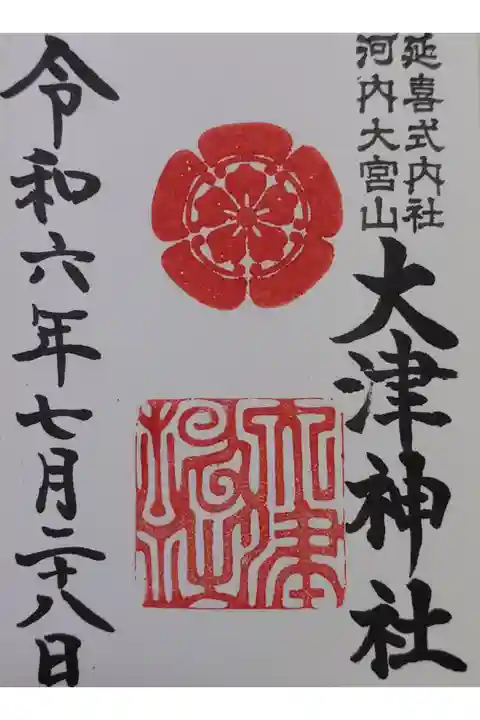 延喜式内社
河内大宮山
大津神社
大津神社
令和六年七月二十八日